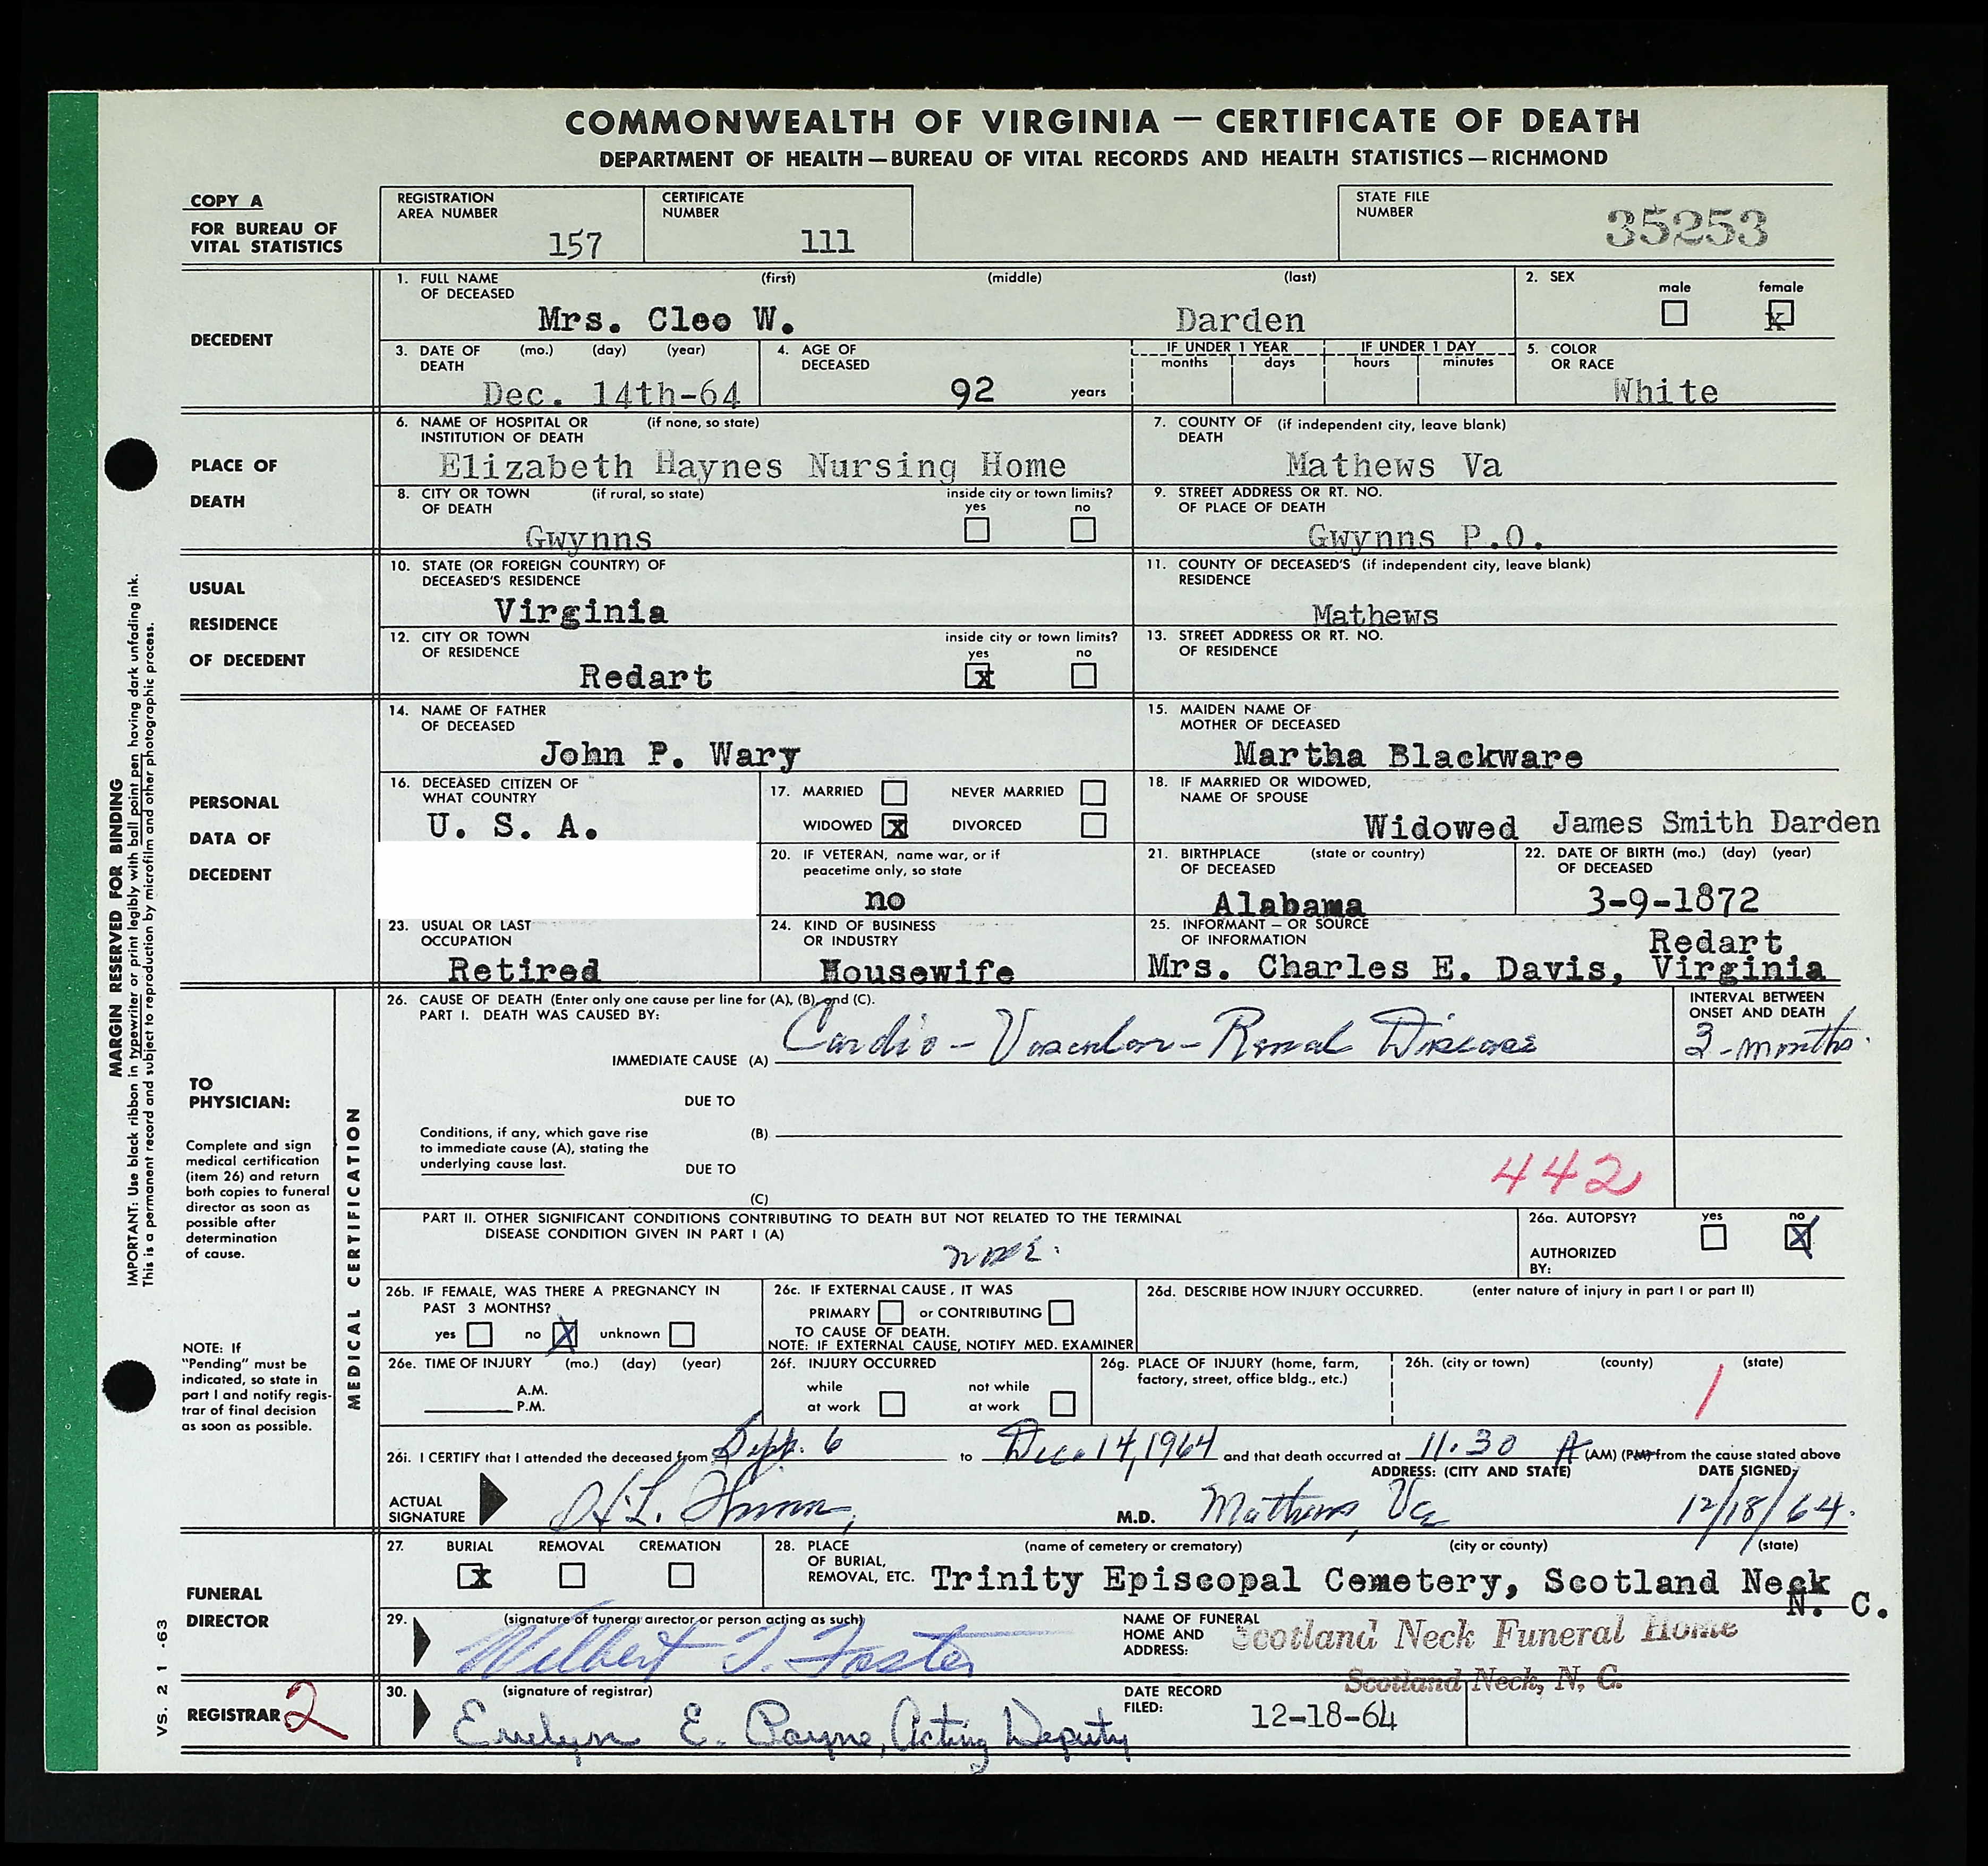 COMMONWEALTH OF VIRGINIA — CERTIFICATE OF DEATH
DEPARTMENT OF HEALTH—BUREAU OF VITAL RECORDS AND HEALTH STATISTICS—RICHMOND
COPY A
FOR BUREAU OF
VITAL STATISTICS
REGISTRATION
AREA NUMBER
157
CERTIFICATE
NUMBER
111
STATE FILE
NUMBER
35253
DECEDENT
1. FULL NAME (first) (middle) (last)
OF DECEASED
Mrs. Cleo W. Darden
2. SEX
male female
x
3. DATE OF (mo.) (day) (year)
DEATH
Dec. 14th-64
4. AGE OF
DECEASED
92 years
IF UNDER 1 YEAR
months days
IF UNDER 1 DAY
hours minutes
5. COLOR
OR RACE
White
PLACE OF
DEATH
6. NAME OF HOSPITAL OR (if none, so state)
INSTITUTION OF DEATH
Elizabeth Haynes Nursing Home
7. COUNTY OF (if independent city, leave blank)
DEATH
Mathews Va
8. CITY OR TOWN (if rural, so state)
OF DEATH
inside city or town limits?
yes no
Gwynns
9. STREET ADDRESS OR RT. NO.
OF PLACE OF DEATH
Gwynns P.O.
USUAL
RESIDENCE
OF DECEDENT
10. STATE (OR FOREIGN COUNTRY) OF
DECEASED'S RESIDENCE
Virginia
11. COUNTY OF DECEASED'S (if independent city, leave blank)
RESIDENCE
Mathews
12. CITY OR TOWN
OF RESIDENCE
inside city or town limits?
yes no
Redart x
13. STREET ADDRESS OR RT. NO.
OF RESIDENCE
PERSONAL
DATA OF
DECEDENT
14. NAME OF FATHER
OF DECEASED
John P. Wary
15. MAIDEN NAME OF
MOTHER OF DECEASED
Martha Blackware
16. DECEASED CITIZEN OF
WHAT COUNTRY
U. S. A.
17. MARRIED NEVER MARRIED
WIDOWED x DIVORCED
18. IF MARRIED OR WIDOWED,
NAME OF SPOUSE
Widowed James Smith Darden
20. IF VETERAN, name war, or if
peacetime only, so state
no
21. BIRTHPLACE (state or country)
OF DECEASED
Alabama
22. DATE OF BIRTH (mo.) (day) (year)
OF DECEASED
3-9-1872
23. USUAL OR LAST
OCCUPATION
Retired
24. KIND OF BUSINESS
OR INDUSTRY
Housewife
25. INFORMANT — OR SOURCE
OF INFORMATION
Redart
Mrs. Charles E. Davis, Virginia
TO
PHYSICIAN:
Complete and sign
medical certification
(item 26) and return
both copies to funeral
director as soon as
possible after
determination
of cause.
NOTE: If
"Pending" must be
indicated, so state in
part I and notify regis-
trar of final decision
as soon as possible.
MEDICAL CERTIFICATION
26. CAUSE OF DEATH (Enter only one cause per line for (A), (B), and (C).
PART I. DEATH WAS CAUSED BY:
IMMEDIATE CAUSE (A) Cardio-Vascular-Renal Disease
INTERVAL BETWEEN
ONSET AND DEATH
3-months.
DUE TO
Conditions, if any, which gave rise
to immediate cause (A), stating the
underlying cause last.
(B)
DUE TO
(C)
442
PART II. OTHER SIGNIFICANT CONDITIONS CONTRIBUTING TO DEATH BUT NOT RELATED TO THE TERMINAL
DISEASE CONDITION GIVEN IN PART I (A)
none.
26a. AUTOPSY? yes no
X
AUTHORIZED
BY:
26b. IF FEMALE, WAS THERE A PREGNANCY IN
PAST 3 MONTHS?
yes no X unknown
26c. IF EXTERNAL CAUSE, IT WAS
PRIMARY or CONTRIBUTING
TO CAUSE OF DEATH.
NOTE: IF EXTERNAL CAUSE, NOTIFY MED. EXAMINER
26d. DESCRIBE HOW INJURY OCCURRED. (enter nature of injury in part I or part II)
26e. TIME OF INJURY (mo.) (day) (year)
A.M.
P.M.
26f. INJURY OCCURRED
while
at work
not while
at work
26g. PLACE OF INJURY (home, farm,
factory, street, office bldg., etc.)
26h. (city or town) (county) (state)
1
26i. I CERTIFY that I attended the deceased from Sept. 6 to Dec. 14, 1964 and that death occurred at 11.30 A (AM) (PM) from the cause stated above
ACTUAL
SIGNATURE
M.D.
ADDRESS: (CITY AND STATE)
Mathews, Va
DATE SIGNED:
12/18/64.
FUNERAL
DIRECTOR
27. BURIAL REMOVAL CREMATION
x
28. PLACE
OF BURIAL,
REMOVAL, ETC.
(name of cemetery or crematory) (city or county) (state)
Trinity Episcopal Cemetery, Scotland Neck
N. C.
29. (signature of funeral director or person acting as such)
Wilbert T. Foster
NAME OF FUNERAL
HOME AND
ADDRESS:
Scotland Neck Funeral Home
Scotland Neck, N. C.
REGISTRAR 2
30. (signature of registrar)
Evelyn E. Payne, Acting Deputy
DATE RECORD
FILED:
12-18-64
MARGIN RESERVED FOR BINDING
IMPORTANT: Use black ribbon in typewriter or print legibly with ball point pen having dark unfading ink.
This is a permanent record and subject to reproduction by microfilm and other photographic process.
VS. 2 1 -63